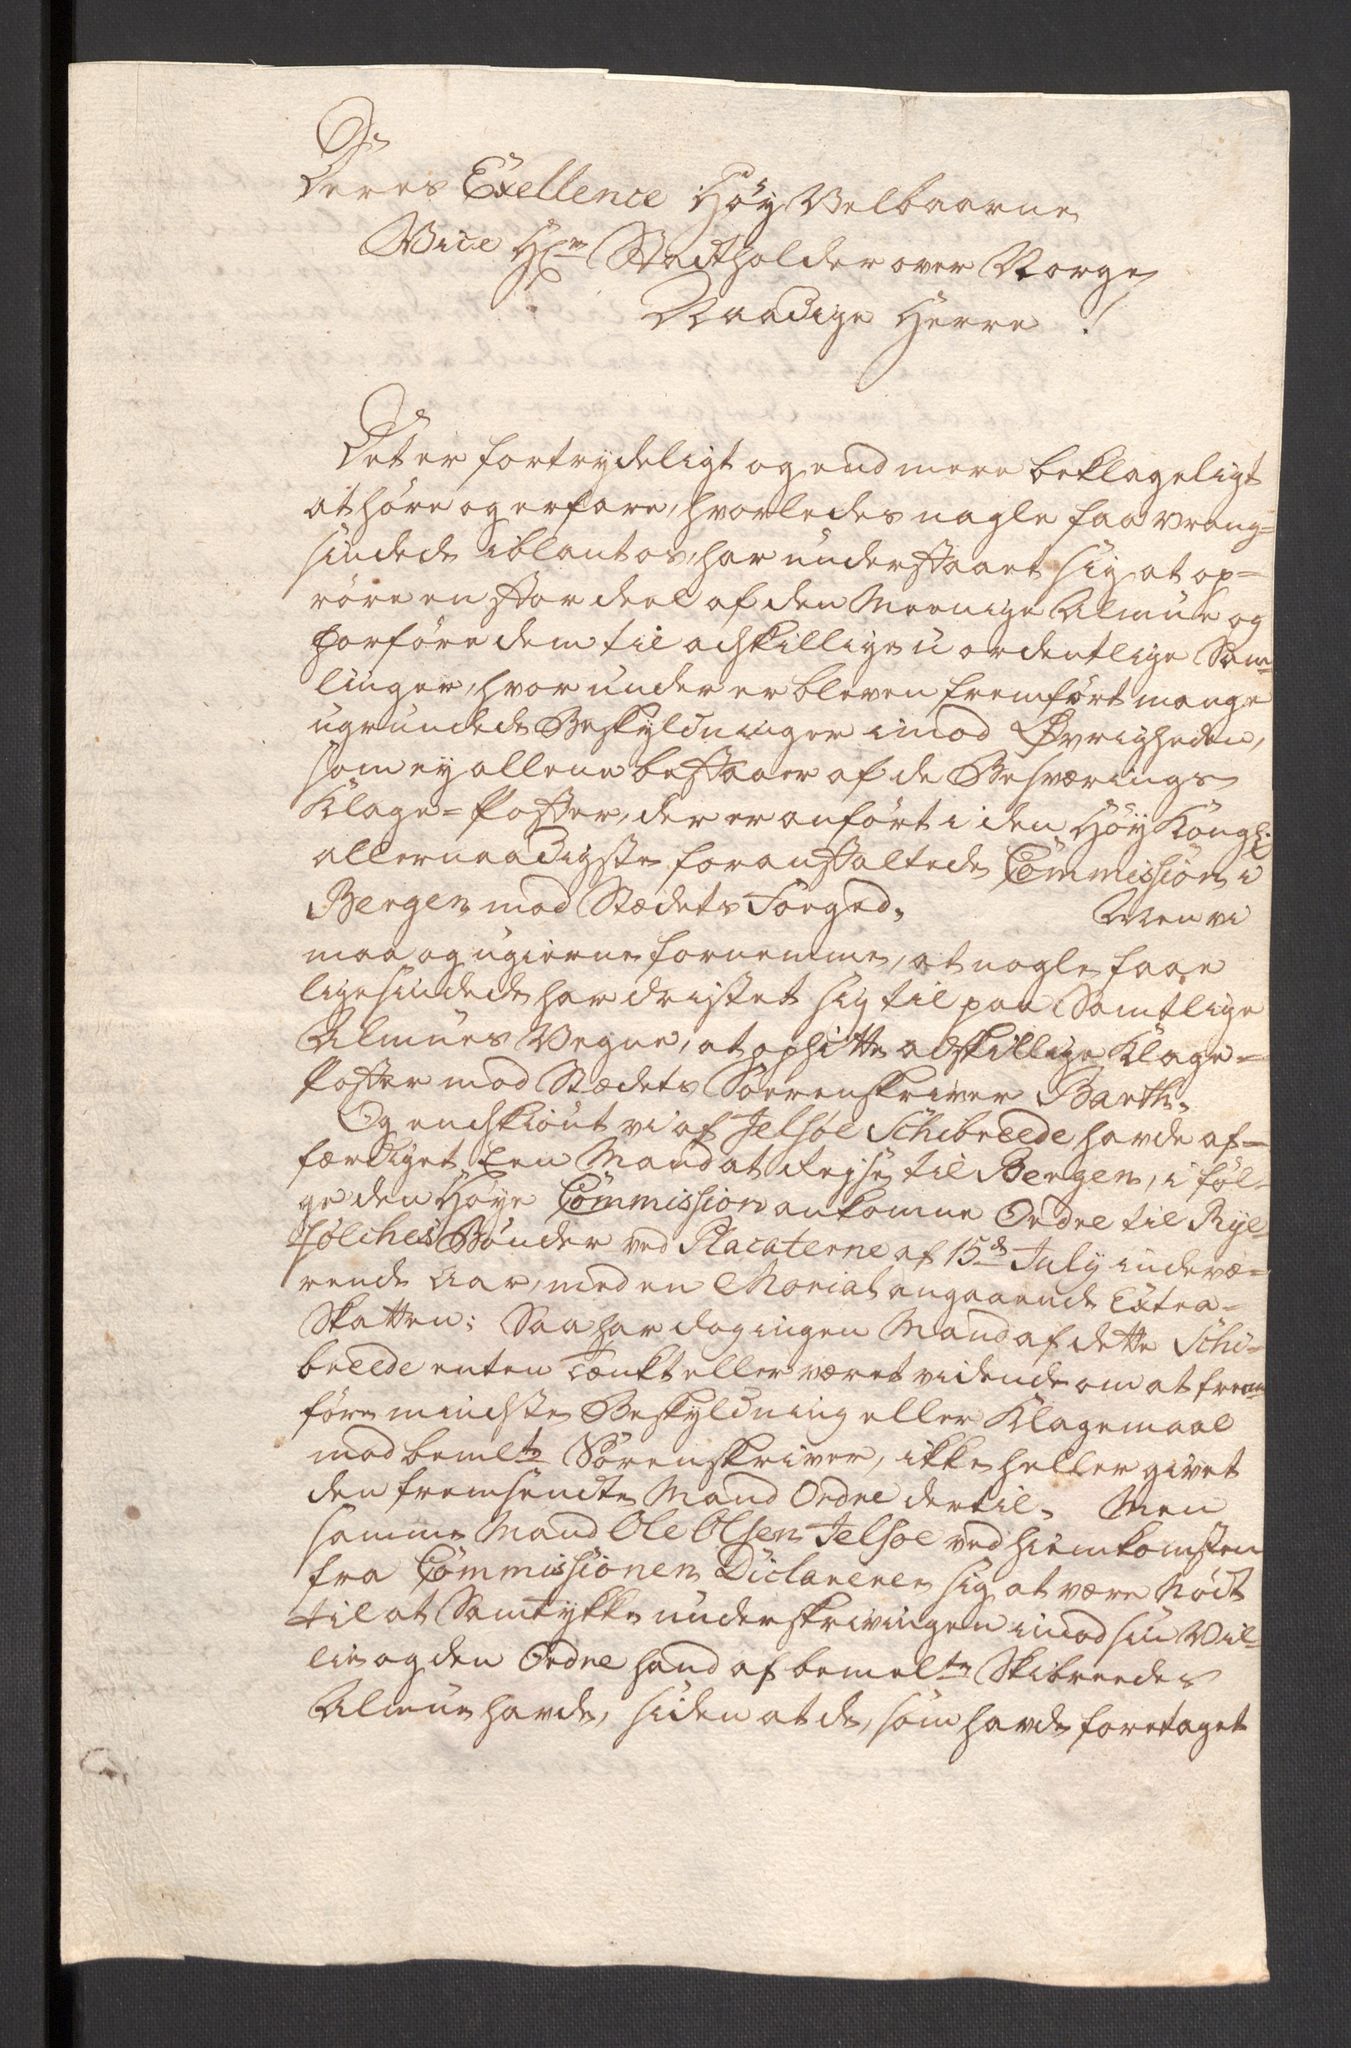 Deres Exellence Höy Velbaarne
Vice Hr Stadtholder over Norge
Naadige Herre !
Det er fortrydeligt og end mere beklageligt
at höre og erfare, hvorledes nogle faa vrang-
sindede iblant os, har understaaet sig at op-
röre en stor deel af den Meenige Almue og
forföre dem til adskillige uordentlige Sam-
linger, hvor under er bleven fremfört mange
ugrundede Beskyldninger imod Øvrigheden,
som ey allene bestaaer af de Besværings
Klage-Poster, der er anfört i den Höy Kongl:
allernaadigste foranstaltede Commission i
Bergen mod Stædets Foeged. Men vi
maa og ugierne fornemme, at nogle faae
ligesindede har dristet sig til paa Samtlige
Almues Vegne, at ophitte adskillige Klage-
Poster mod Stædets Sorrenskriver Barth.
Og endskiönt vi af Jelsöe Schibreede havde af-
færdiget Een Mand at Rejse til Bergen, i föl-
ge den Höye Commission ankomne Ordre til Rye-
fölches Bönder ved Placaterne af 15de July indevæ-
rende Aar, med en Morial angaaende Extra-
Skatten; Saa har dog ingen Mand af dette Schi-
breede enten tænkt eller været vidende om at frem-
före mindste Beskyldning eller Klagemaal
mod bemlte Sörenskriver, ikke heller givet
den fremsendte Mand Ordre dertil. Men
samme Mand Ole Olsen Jelsöe ved hiemkomsten
fra Commissionen Diclarerer sig at være Nödt
til at Samtykke underskrivingen imod sin Vil-
lie og den Ordre hand af bemelte Skibreedes
Almue havde, siden at de, som havde foretaget